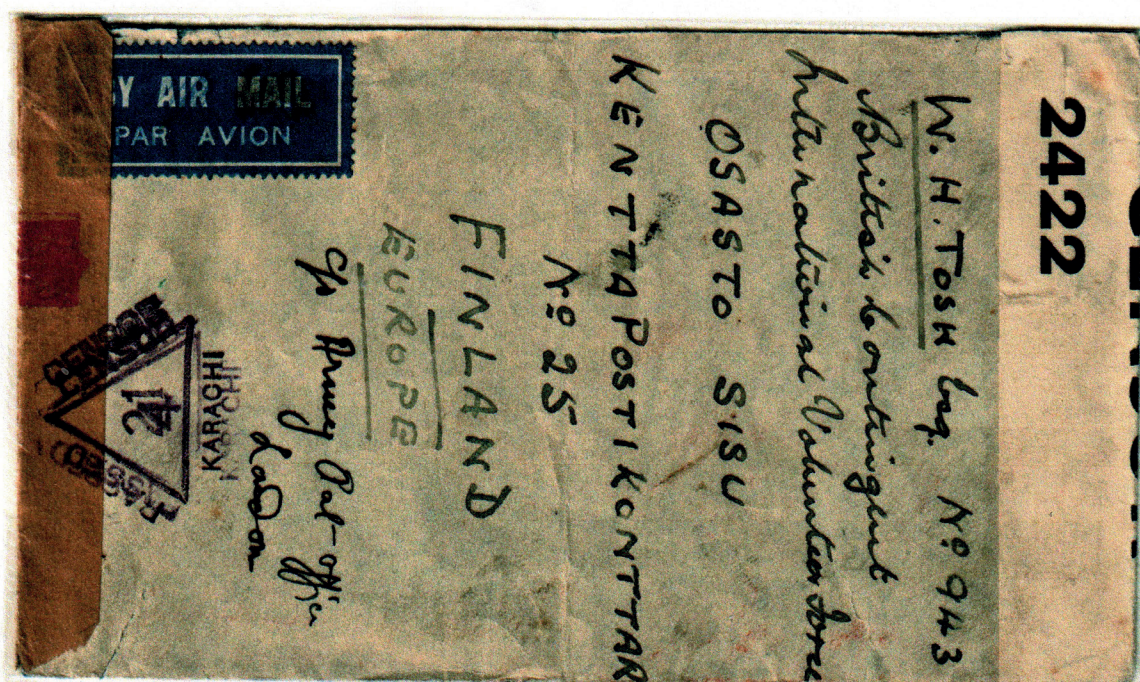 2422
W. H. TOSH Esq. Nº 943
British Contingent
International Volunteer Force
OSASTO SISU
KENTTTAPOSTIKONTTAR
Nº 25
FINLAND
EUROPE
c/o Army Post-Office
London
BY AIR MAIL
PAR AVION
PASSED
CENSOR
24
KARACHI